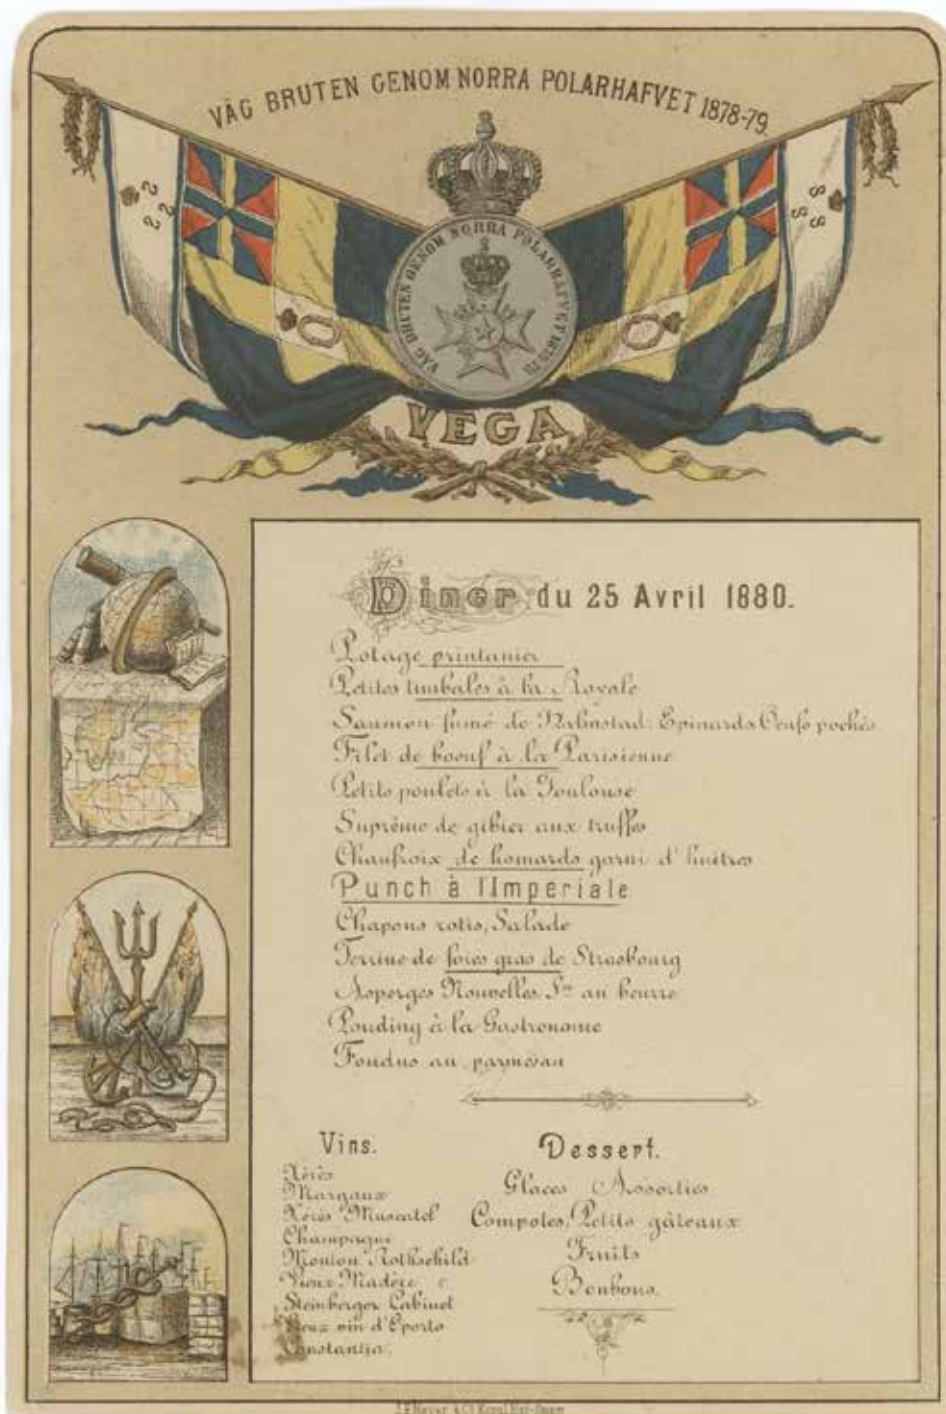 VÄG BRUTEN GENOM NORRA POLARHAFVET 1878-79.
VÄG BRUTEN GENOM NORRA POLARHAFVET
VEGA
Dîner du 25 Avril 1880.
Potage printanier
Petites timbales à la Royale
Saumon fumé de Halmstad. Epinards Oeufs pochés
Filet de boeuf à la Parisienne
Petits poulets à la Toulouse
Suprême de gibier aux truffes
Chaufroix de homards garni d'huitres
Punch à l'Imperiale
Chapons rotis, Salade
Terrine de foies gras de Strasbourg
Asperges Nouvelles Sce au beurre
Pouding à la Gastronome
Fondus au parmesan
Vins.
Xérès
Margaux
Xérès Muscatel
Champagne
Mouton Rothschild
Vieux Madère
Steinberger Cabinet
Vieux vin d'Oporto
Constantia.
Dessert.
Glaces Assorties
Compotes, Petits gâteaux
Fruits
Bonbons.